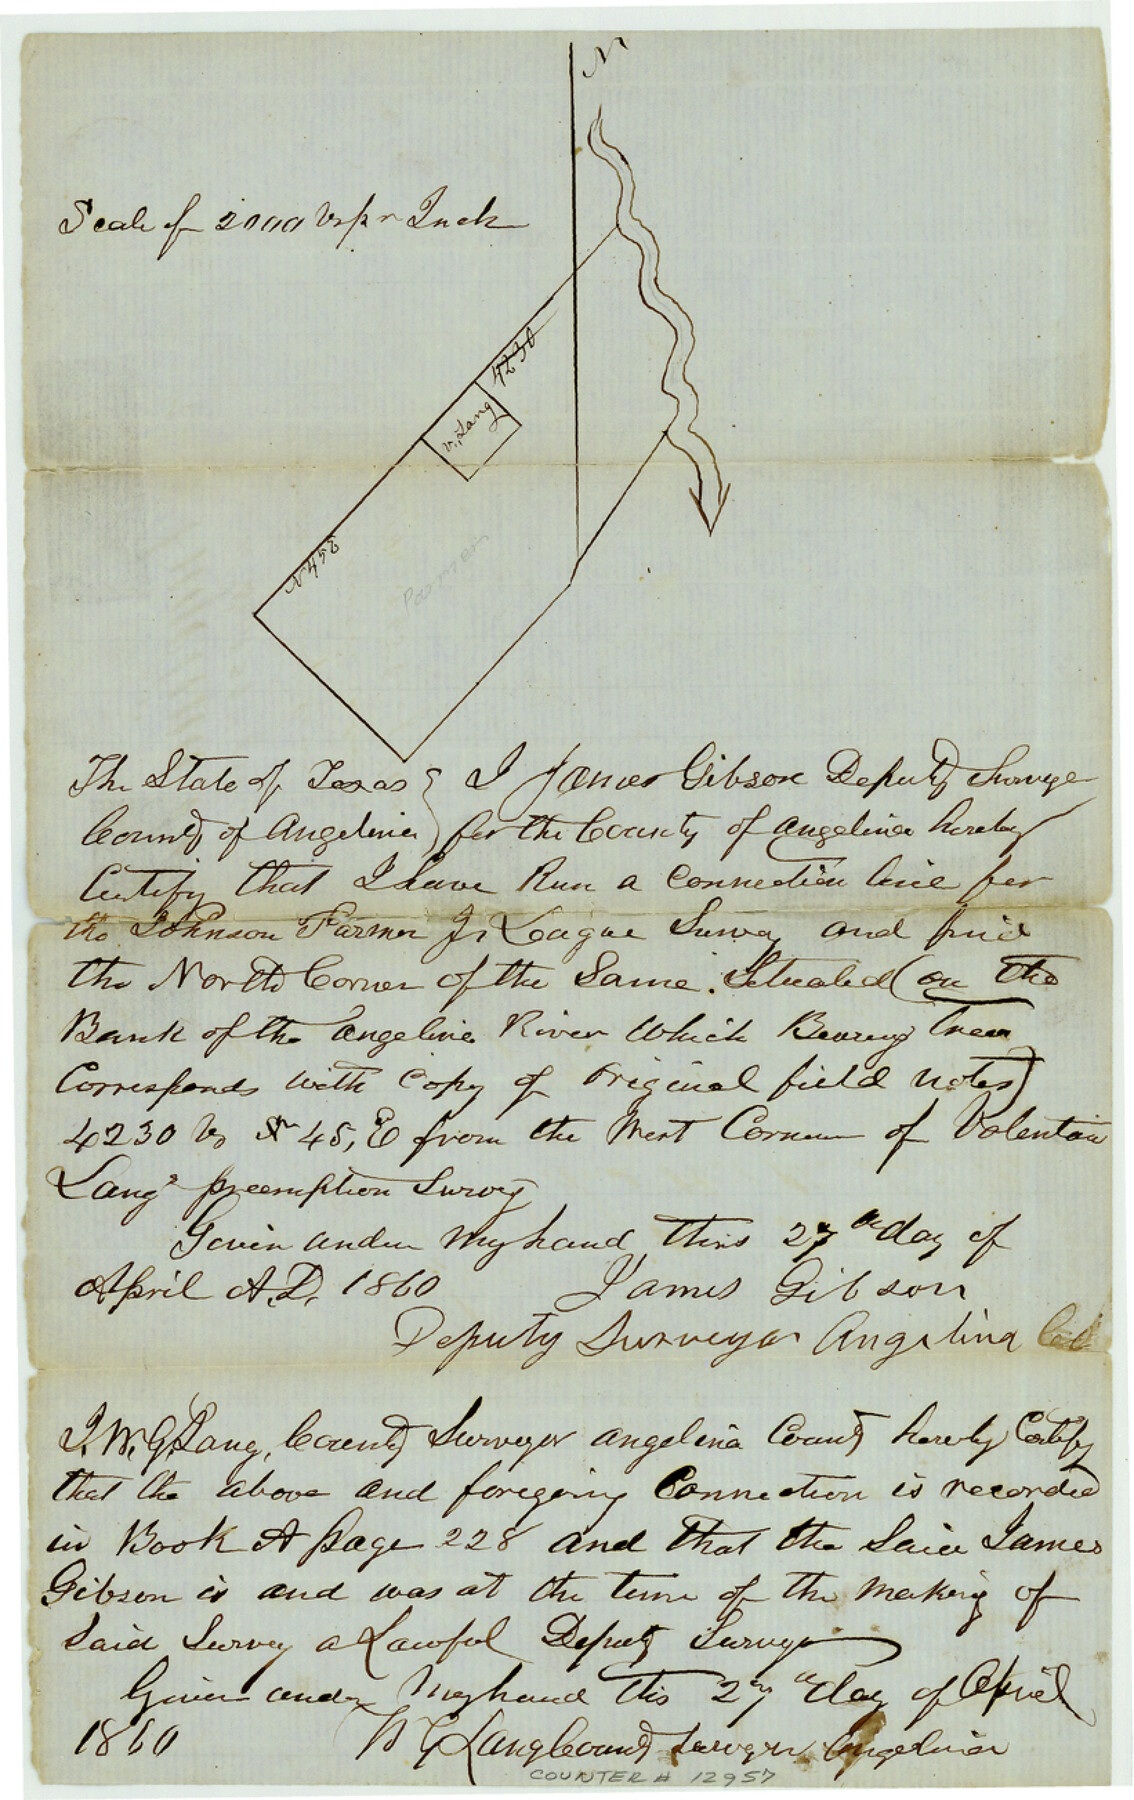 N
Scale of 2000 Vrs pr Inch
4230
V. Lang
N 45 E
Parmer
The State of Texas } I James Gibson Deputy Surveyr
County of Angelina } for the County of Angelina hereby
Certify that I have Run a Connection line for
the Johnson Parmer Jr League Survey and find
the North Corner of the Same. Situated (on the
Bank of the Angelina River Which Bearing trees
Corresponds with Copy of original field notes)
4230 vs N 45, E from the West Corner of Valentin
Langs preemption Survey
Given under My hand this 27th day of
April A.D. 1860 James Gibson
Deputy Surveyor Angelina Co
I, W. G. Lang, County Surveyor Angelina County hereby Certify
that the above and foregoing Connection is recorded
in Book A page 228 and that the Said James
Gibson is and was at the time of the Making of
Said Survey a Lawful Deputy Surveyor
Given under My hand this 27th day of April
1860 W G Lang County Surveyor Angelina
COUNTER # 12957